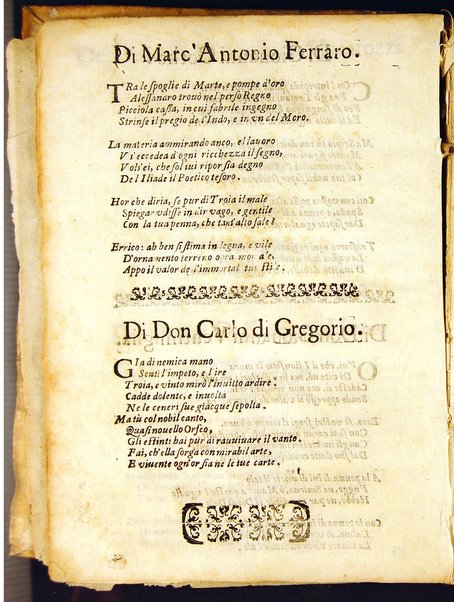 Di Marc'Antonio Ferraro.
TRa le spoglie di Marte, e pompe d'oro
Alessandro trouò nel perso Regno
Picciola cassa, in cui fabrile ingegno
Strinse il pregio de l'Indo, e in vn del Moro.
La materia ammirando anco, e l lauoro
Vi eccedea d'ogni ricchezza il segno,
Vols'ei, che sol iui ripor sia degno
De l Iliade il Poetico tesoro.
Hor che diria, se pur di Troia il male
Spiegar vdisse in dir vago, e gentile
Con la tua penna, che tant'alto sale?
Errico: ah ben si stima indegna, e vile
D'ornamento terreno
Appo il valor de l'immortal tuo stile.
Di Don Carlo di Gregorio.
GIa di nemica mano
Sentì l'impeto, e l ire
Troia, e vinto mirò l'inuitto ardire.
Cadde dolente, e inuolta
Ne le ceneri sue giacque sepolta.
Ma tù col nobil canto,
Quasi nouello Orfeo,
Gli estinti hai pur di rauuiuare il vanto.
Fai, ch'ella sorga con mirabil arte,
E viuente ogn'or sia ne le tue carte.